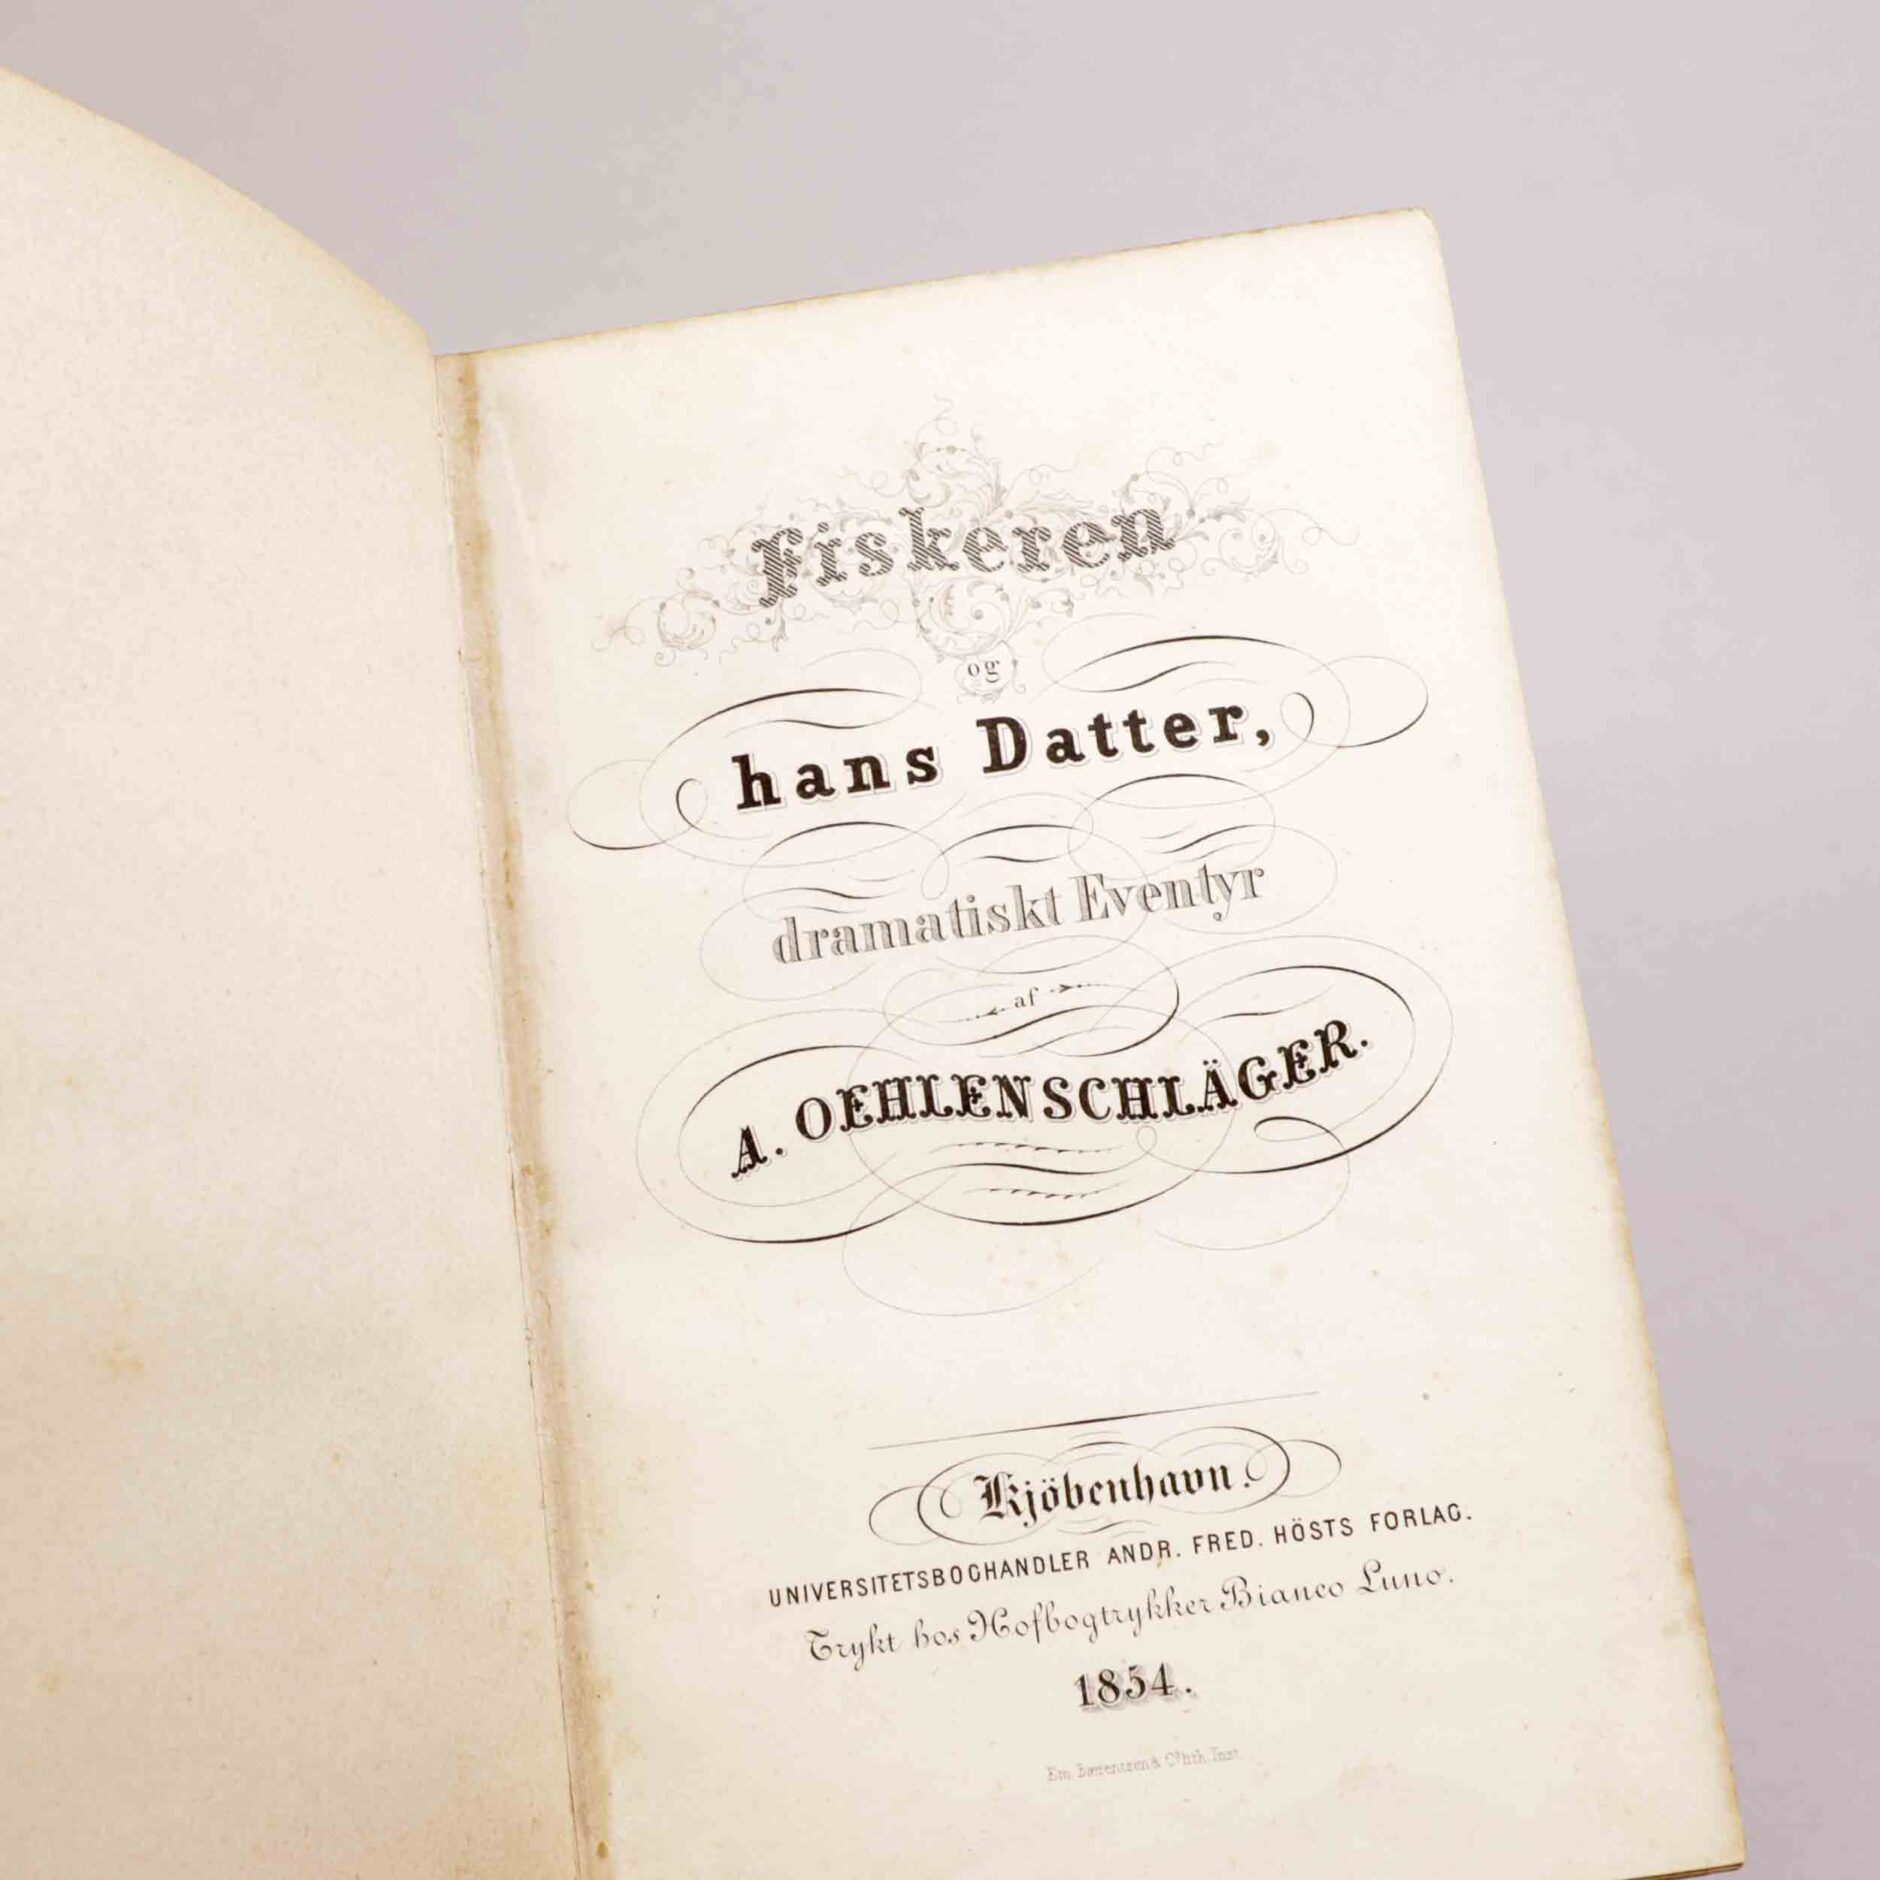 Fiskeren
og
hans Datter,
dramatiskt Eventyr
af
A. OEHLENSCHLÄGER.
Kjöbenhavn.
UNIVERSITETSBOGHANDLER ANDR. FRED. HÖSTS FORLAG.
Trykt hos Hofbogtrykker Bianco Luno.
1854.
Em. Bærentzen & Co lith. Inst.